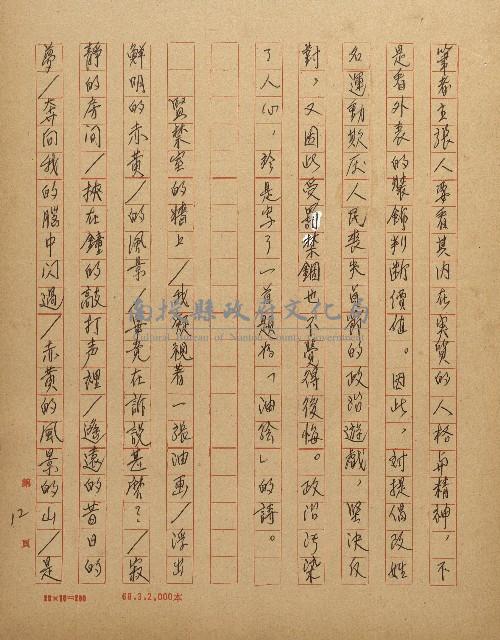 筆者主張人要看其內在実質的人格與精神，不
是看外表的裝飾判断價值。因此，對提倡改姓
名運動欺压人民喪失自節的政治遊戲，堅決反
對，又因此受罰禁錮也不覺得後悔。政治污染
了人心，於是寫了一首題為「油绘」的詩。
監禁室的牆上／我凝視着一張油画／浮出
鮮明的赤黄／的風景／畫究在訴説甚麼？／寂
靜的房间／挾在鐘的敲打声裡／遙遠的昔日的
夢／奔向我的腦中闪過／赤黄的風景的山／是
第 12 頁
20×10=200 68.3.2,000本
南投縣政府文化局
Cultural Bureau of Nantou County Government